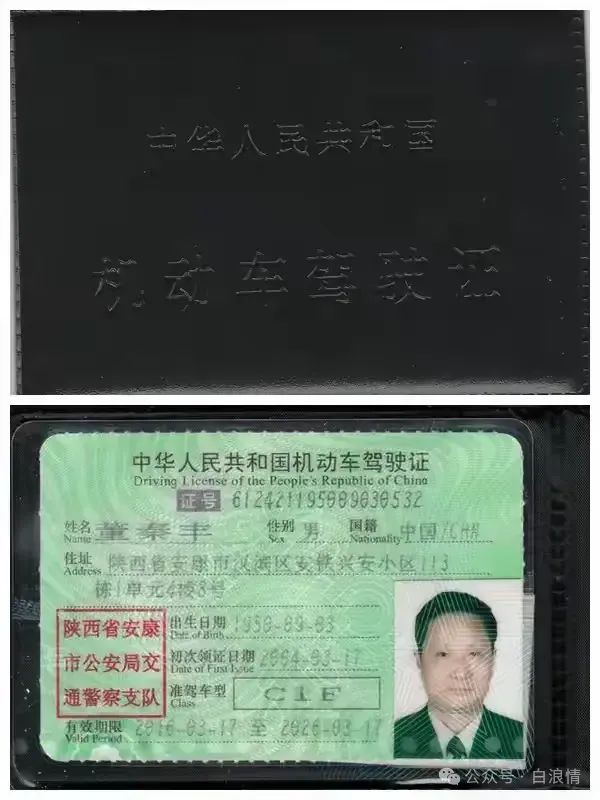 中华人民共和国
机动车驾驶证
中华人民共和国机动车驾驶证
Driving License of the People's Republic of China
证号 612421195009030532
姓名 董 丰 性别 男 国籍 中国/CHN
Name Sex Nationality
住址 陕西省安康市汉滨区安铁兴安小区113
Address
栋1单元4楼8号
陕西省安康
市公安局交
通警察支队
出生日期 1950-09-03
Date of Birth
初次领证日期 2004-03-17
Date of First Issue
准驾车型 C1F
Class
有效期限 2016-03-17 至 2026-03-17
Valid Period
公众号·白浪情